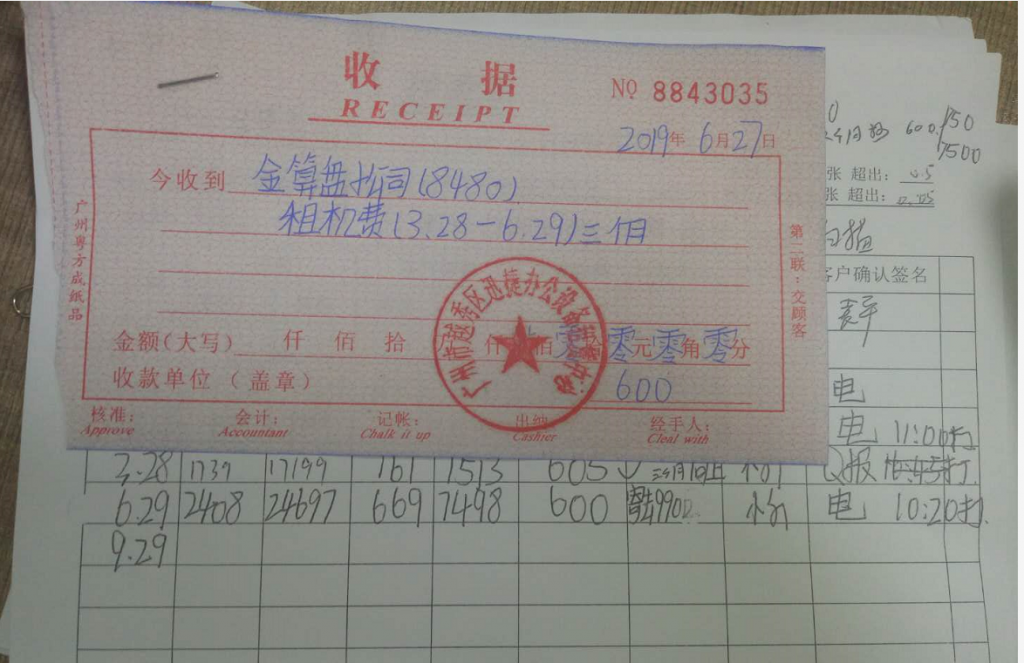 收 据
RECEIPT
NO 8843035
2019年 6月27日
今收到 金算盘公司(8480)
租机费(3.28-6.29)三个月
金额(大写) 仟 佰 拾 仟 佰零拾零元零角零分
收款单位(盖章) 600
核准: 会计: 记帐: 出纳: 经手人:
Approve Accountant Chalk it up Cashier Cleal with
广州粤方成纸品
第二联:交顾客
广州市越秀区迅捷办公设备
600 150
1500
张 超出: 0.5
张 超出:
客户确认签名
电
电 11:00打
3.28 1737 17199 161 1513 605
6.29 2408 24697 669 7498 600 电 10:20打
9.29